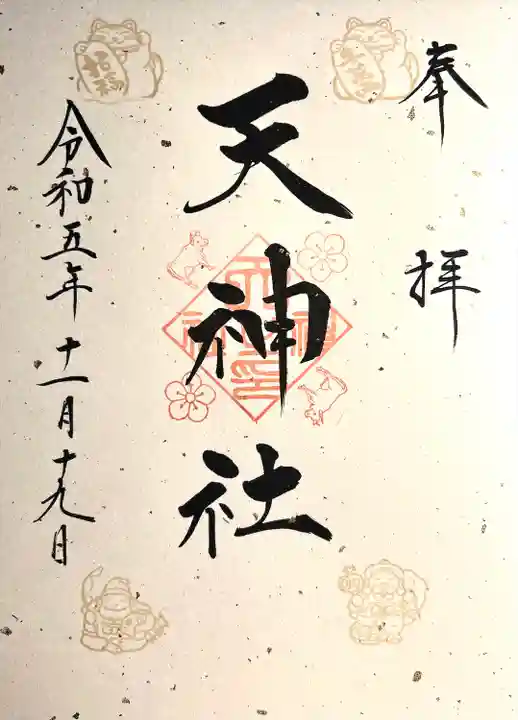 奉拝
天神社
令和五年十一月十九日
招福